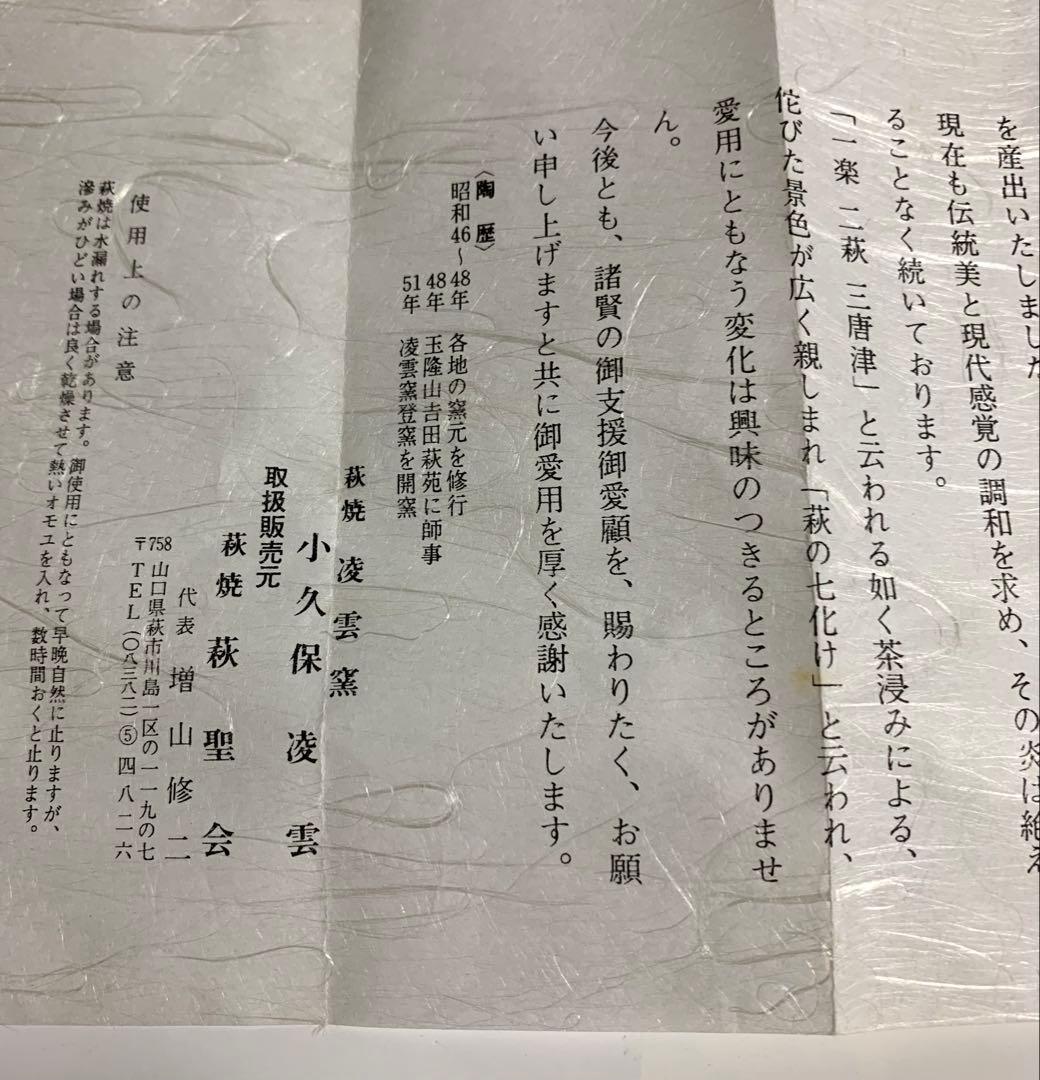 を産出いたしました
現在も伝統美と現代感覚の調和を求め、その炎は絶え
ることなく続いております。
「一楽 二萩 三唐津」と云われる如く茶浸みによる、
侘びた景色が広く親しまれ「萩の七化け」と云われ、
愛用にともなう変化は興味のつきるところがありませ
ん。
今後とも、諸賢の御支援御愛顧を、賜わりたく、お願
い申し上げますと共に御愛用を厚く感謝いたします。
〈陶歴〉
昭和46〜48年 各地の窯元を修行
48年 玉隆山吉田萩苑に師事
51年 凌雲窯登窯を開窯
萩焼 凌雲窯
小久保 凌雲
取扱販売元
萩焼 萩聖会
代表 増山修二
〒758 山口県萩市川島一区の一一九の七
TEL(〇八三八二)⑤四八二六
使用上の注意
萩焼は水漏れする場合があります。御使用にともなって早晩自然に止りますが、
滲みがひどい場合は良く乾燥させて熱いオモユを入れ、数時間おくと止ります。